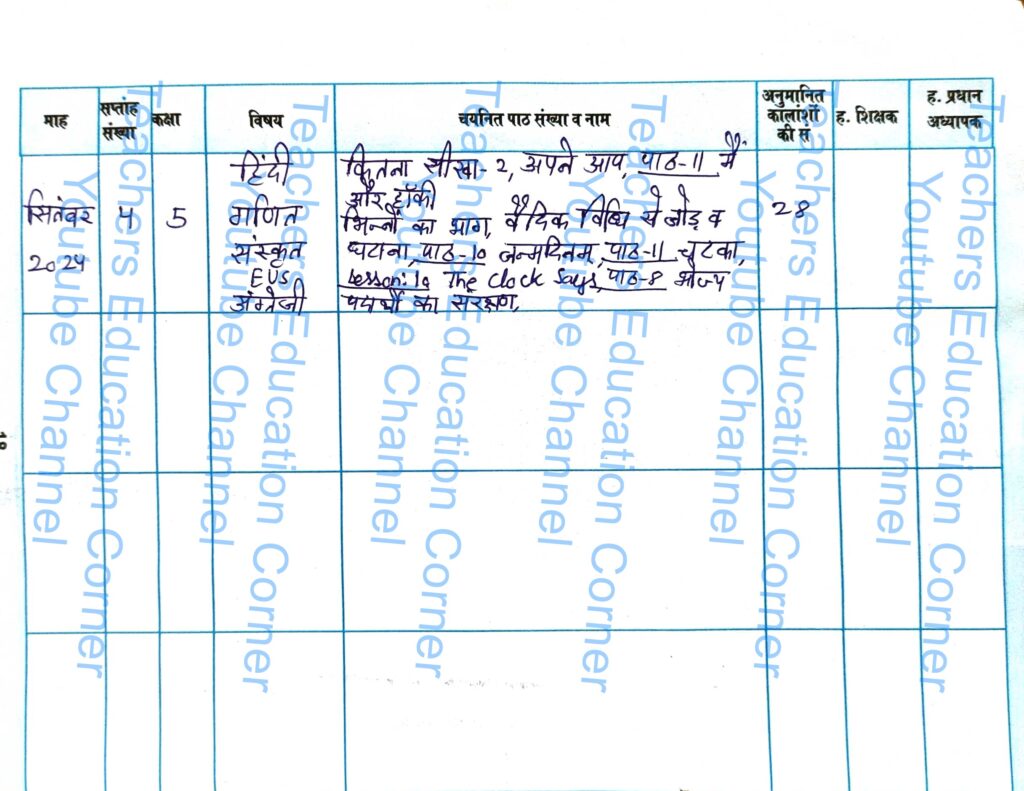 माह सप्तांह संख्या कक्षा विषय चयनित पाठ संख्या व नाम अनुमानित कालांशों की सं ह. शिक्षक ह. प्रधान अध्यापक
हिंदी कितना सीखा-2, अपने आप, पाठ-11 मैं
और हॉकी
सितंबर 4 5 गणित भिन्नों का भाग, वैदिक विधि से जोड़ व 28
2024 संस्कृत घटाना, पाठ-10 जन्मदिनम, पाठ-11 चटका,
EVS Lesson:10 The Clock Says, पाठ-8 भोज्य
अंग्रेजी पदार्थों का संरक्षण,
Teachers Education Corner
Youtube Channel
Teachers Education Corner
Youtube Channel
Teachers Education Corner
Youtube Channel
Teachers Education Corner
Youtube Channel
Teachers Education Corner
Youtube Channel
Teachers Education Corner
Youtube Channel